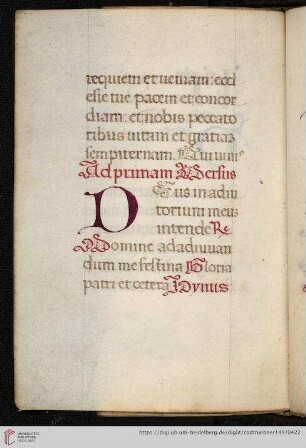 requiem et ueniam: eccl
esie tue pacem et concor
diam: et nobis peccato
ribus uitam et gratiaz
sempiternam. Qui uiuis
Ad primam Versus
Deus in adiu
torium meuz
intende Re
Domine ad adiuuan
dum me festina Gloria
patri et cetera Jdynus
UNIVERSITÄTS-
BIBLIOTHEK
HEIDELBERG
https://digi.ub.uni-heidelberg.de/diglit/codtruebner149/0422